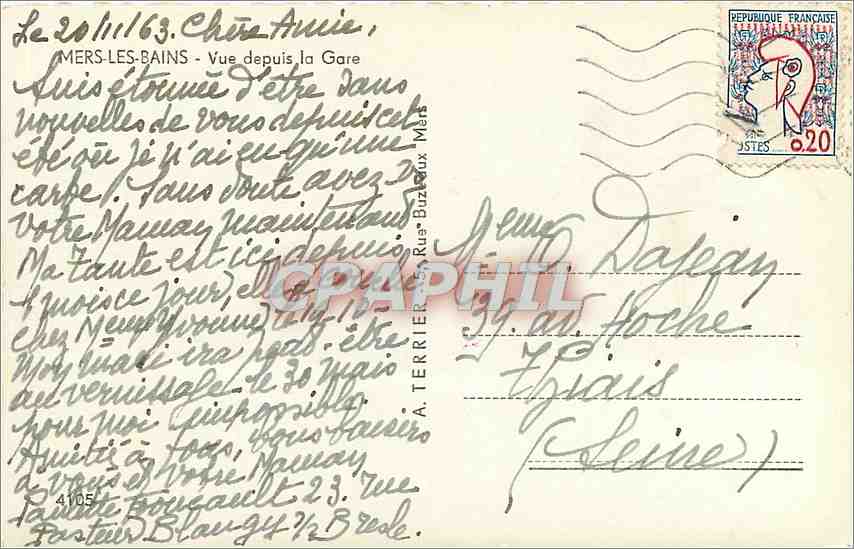 Le 20/11/63. Chère Amie,
MERS-LES-BAINS - Vue depuis la Gare
Suis étonnée d'être sans
nouvelles de vous depuis cet
été où je n'ai eu qu'une
carte. Sans doute avez
votre Maman maintenant
Ma Tante est ici depuis
1 mois ce jour,
chez Yvonne le 19-10-
Mon mari ira peut-être
au vernissage le 30 mais
pour moi impossible.
Amitié à tous, bons baisers
à vous et votre Maman
4105
Paulette Foucault 23. rue
Pasteur Blangy s/ Bresle.
A. TERRIER Rue Buzeaux Mers
REPUBLIQUE FRANÇAISE
POSTES 0,20
CPARAMA
Dajean
39. av. Hoche
Thiais
(Seine)